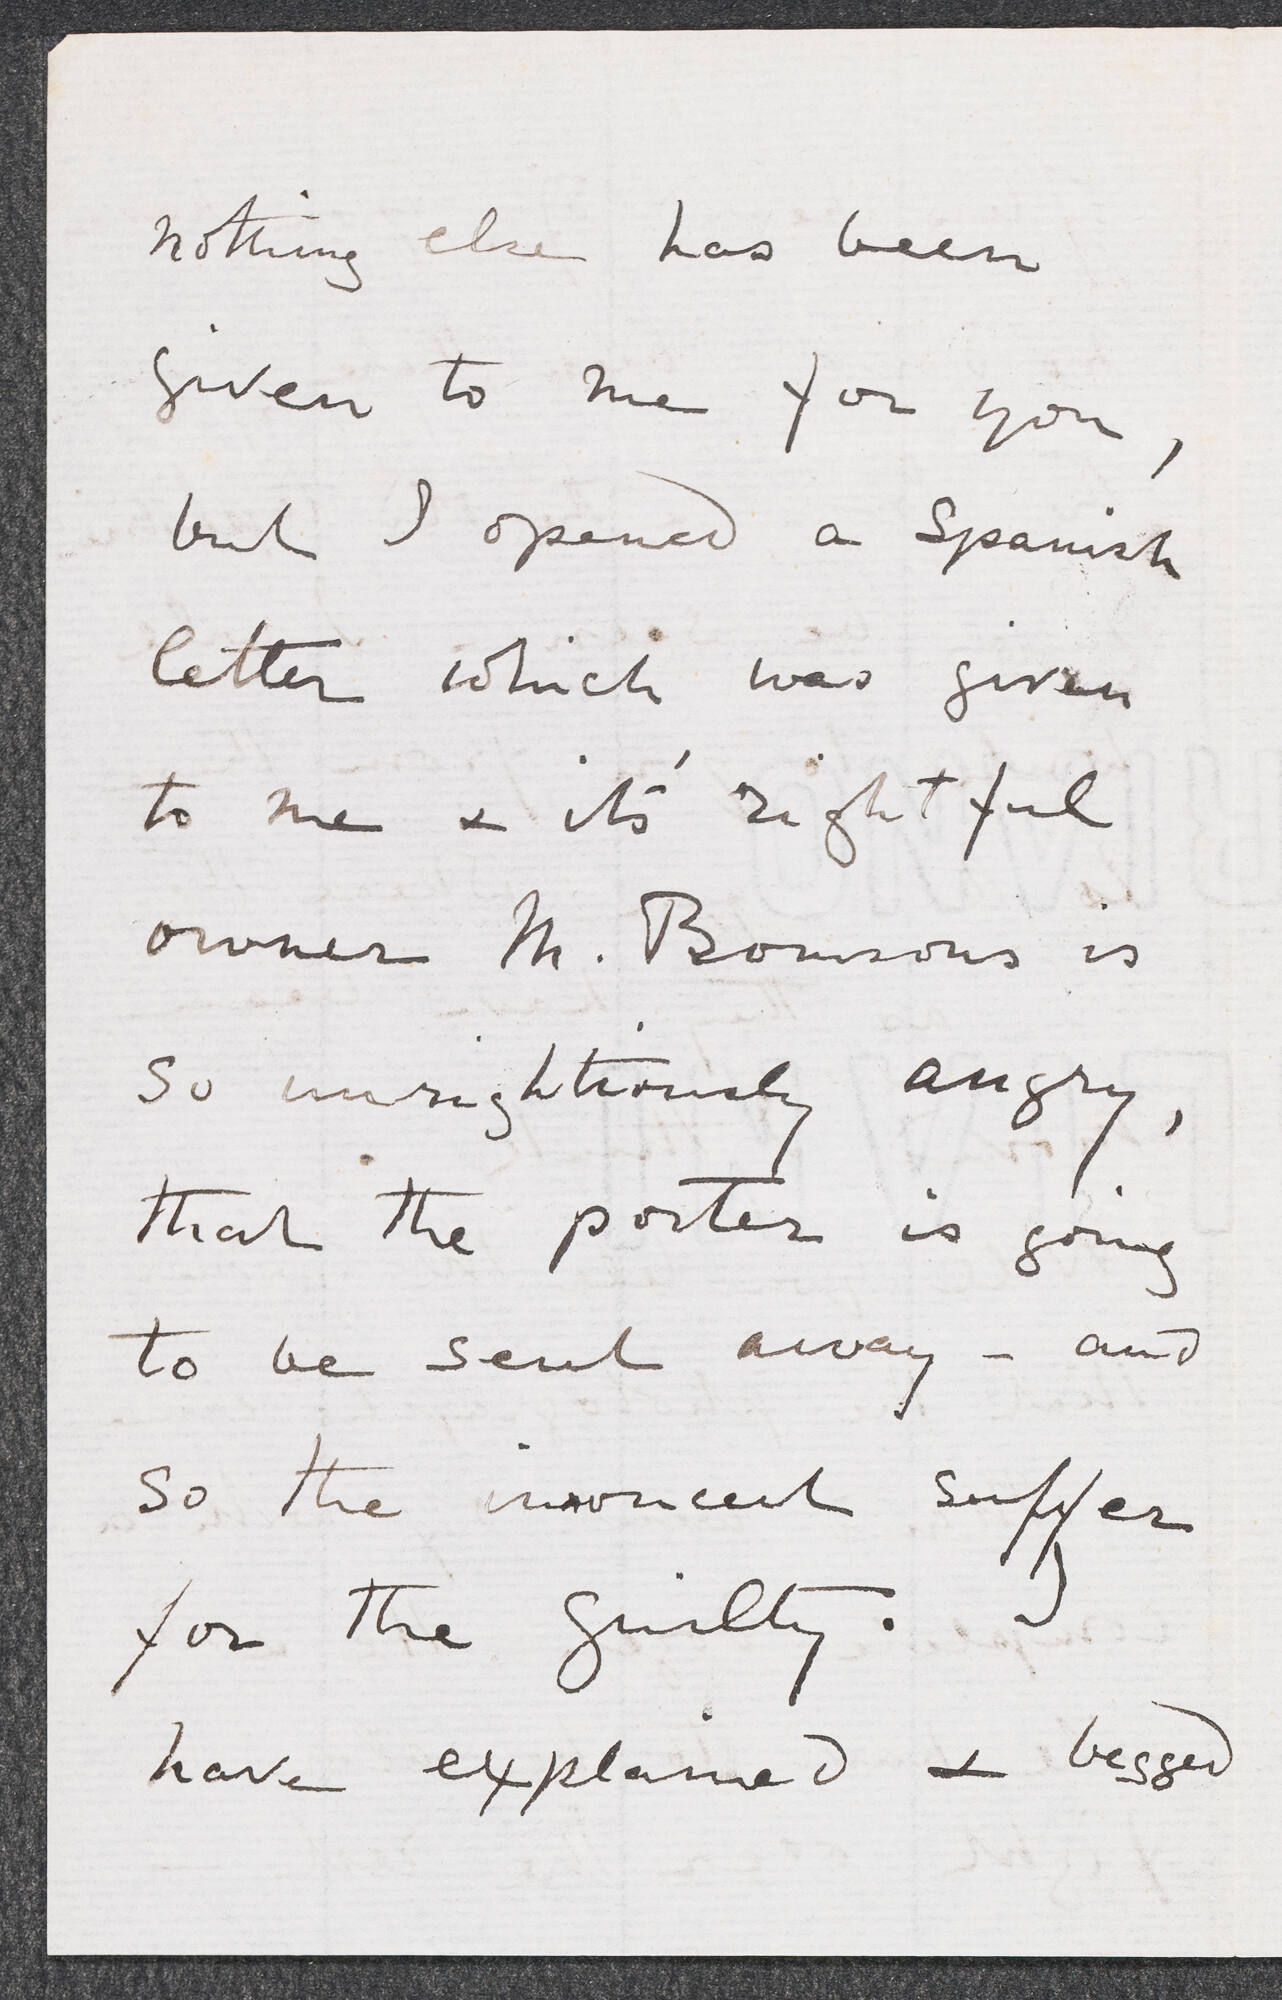 nothing else has been
given to me for you,
but I opened a Spanish
letter which was given
to me & it's rightful
owner M. is
so unrightiously angry,
that the porter is going
to be sent away - and
so the innoncent suffer
for the guilty. I
have explained & begged